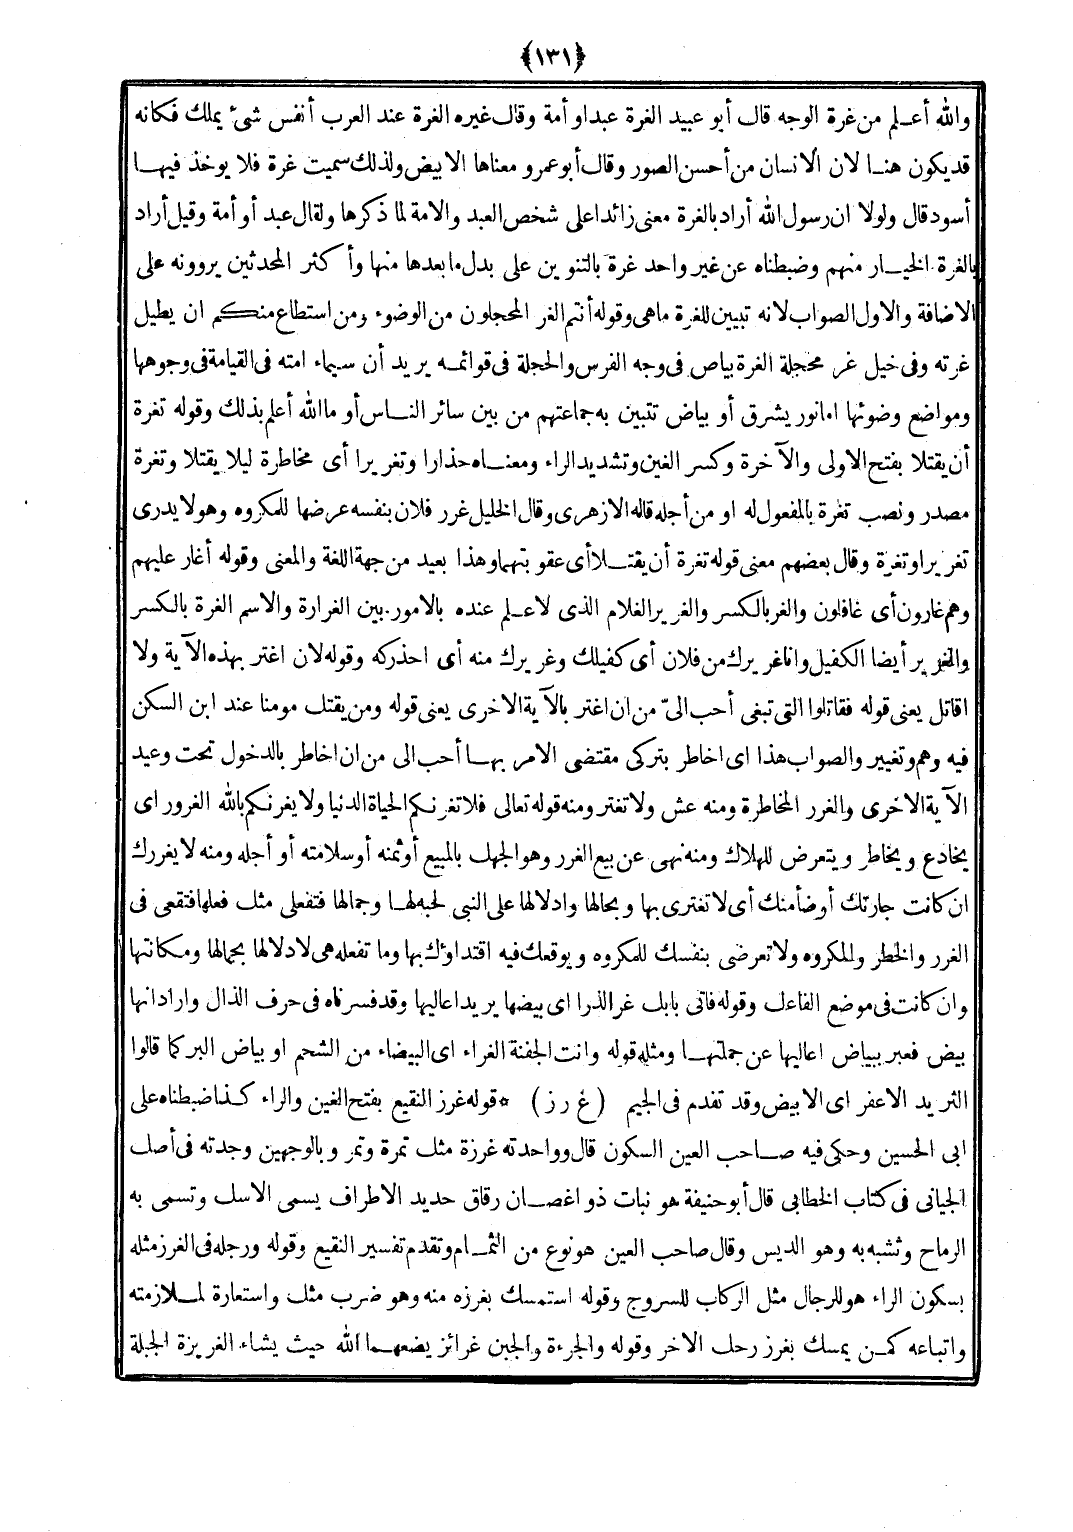 ﴿١٣١﴾
والله أعلم من غرة الوجه قال أبو عبيد الغرة عبدا وأمة وقال غيره الغرة عند العرب أنفس شئ يملك فكانه
قد يكون هنا لان الانسان من أحسن الصور وقال أبو عمرو معناها الابيض ولذلك سميت غرة فلا يوخذ فيها
أسود قال ولولا ان رسول الله أراد بالغرة معنى زائدا على شخص العبد والامة لما ذكرها ولقال عبد أو أمة وقيل أراد
بالغرة الخيار منهم وضبطناه عن غير واحد غرة بالتنوين على بدل ما بعدها منها وأكثر المحدثين يروونه على
الاضافة والاول الصواب لانه تبيين للغرة ماهى وقوله أنتم الغر المحجلون من الوضوء ومن استطاع منكم ان يطيل
غرته وفى خيل غر محجلة الغرة بياض فى وجه الفرس والحجلة فى قوائمه يريد أن سيماء امته فى القيامة فى وجوهها
ومواضع وضوئها اما نور يشرق أو بياض تتبين به جماعتهم من بين سائر الناس أو ما الله أعلم بذلك وقوله تغرة
أن يقتلا بفتح الاولى والآخرة وكسر الغين وتشديد الراء ومعناه حذارا وتغريرا أى مخاطرة ليلا يقتلا وتغرة
مصدر ونصب تغرة بالمفعول له او من أجله قاله الازهرى وقال الخليل غرر فلان بنفسه عرضها للمكروه وهو لا يدرى
تغريرا وتغرة وقال بعضهم معنى قوله تغرة أن يقتلا أى عقوبتهما وهذا بعيد من جهة اللغة والمعنى وقوله أغار عليهم
وهم غارون أى غافلون والغر بالكسر والغرير الغلام الذى لا علم عنده بالامور بين الغرارة والاسم الغرة بالكسر
والغرير أيضا الكفيل وانا غريرك من فلان أى كفيلك وغريرك منه أى احذركه وقوله لان اغتر بهذه الآية ولا
اقاتل يعنى قوله فقاتلوا التى تبغى أحب الىّ من ان اغتر بالآية الاخرى يعنى قوله ومن يقتل مومنا عند ابن السكن
فيه وهم وتغيير والصواب هذا اى اخاطر بتركى مقتضى الامر بها أحب الى من ان اخاطر بالدخول تحت وعيد
الآية الاخرى والغرر المخاطرة ومنه عش ولا تغتر ومنه قوله تعالى فلا تغرنكم الحياة الدنيا ولا يغرنكم بالله الغرور اى
يخادع ويخاطر ويتعرض للهلاك ومنه نهى عن بيع الغرر وهو الجهل بالمبيع أو ثمنه أو سلامته أو أجله ومنه لا يغررك
ان كانت جارتك أوضأ منك أى لا تغترى بها وبحالها وادلالها على النبى لحبه لها وجمالها فتفعلى مثل فعلها فتقعى فى
الغرر والخطر والمكروه ولا تعرضى بنفسك للمكروه ويوقعك فيه اقتداؤك بها وما تفعله هى لا دلالها بجمالها ومكانتها
وان كانت فى موضع الفاعل وقوله فاتى بابل غر الذرا اى بيضها يريد اعاليها وقد فسرناه فى حرف الذال واراد انها
بيض فعبر ببياض اعاليها عن جملتها ومثله قوله وانت الجفنة الغراء اى البيضاء من الشحم او بياض البر كما قالوا
الثريد الاعفر اى الابيض وقد تقدم فى الجيم (غ ر ز) * قوله غرز النقيع بفتح الغين والراء كذا ضبطناه على
ابى الحسين وحكى فيه صاحب العين السكون قال وواحدته غرزة مثل تمرة وتمر وبالوجهين وجدته فى أصل
الجيانى فى كتاب الخطابى قال أبو حنيفة هو نبات ذو اغصان رقاق حديد الاطراف يسمى الاسل وتسمى به
الرماح وتشبه به وهو الديس وقال صاحب العين هو نوع من الثمام وتقدم تفسير النقيع وقوله ورجله فى الغرز مثله
بسكون الراء هو للرجال مثل الركاب للسروج وقوله استمسك بغرزه منه وهو ضرب مثل واستعارة لملازمته
واتباعه كمن يمسك بغرز رحل الاخر وقوله والجرءة والجبن غرائز يضعهما الله حيث يشاء الغريزة الجبلة